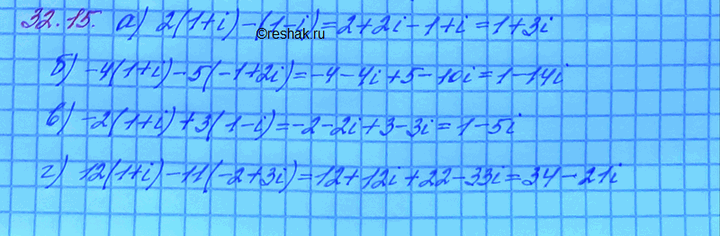 32.15. а) 2(1+i)-(1-i)=2+2i-1+i=1+3i
©reshak.ru
б) -4(1+i)-5(-1+2i)=-4-4i+5-10i=1-14i
в) -2(1+i)+3(1-i)=-2-2i+3-3i=1-5i
г) 12(1+i)-11(-2+3i)=12+12i+22-33i=34-21i